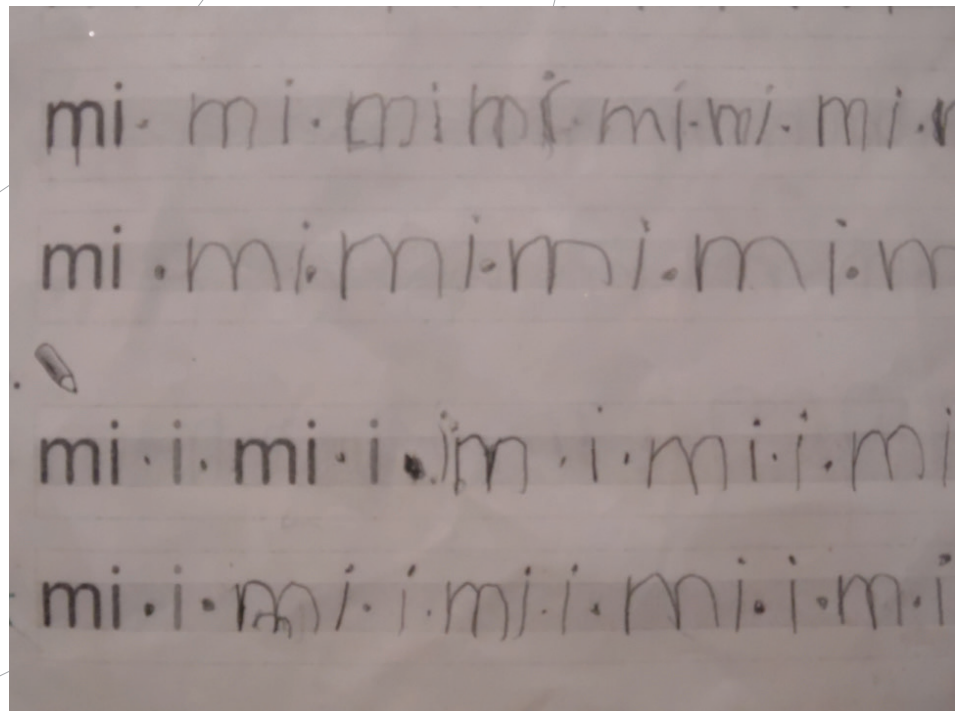 mi · mi · mi mi mi · mi · mi ·
mi · mi · mi · mi · mi · m
mi · i · mi · i · m · i · mi · i · mi
mi · i · mi · i · mi · i · mi · i · m · i